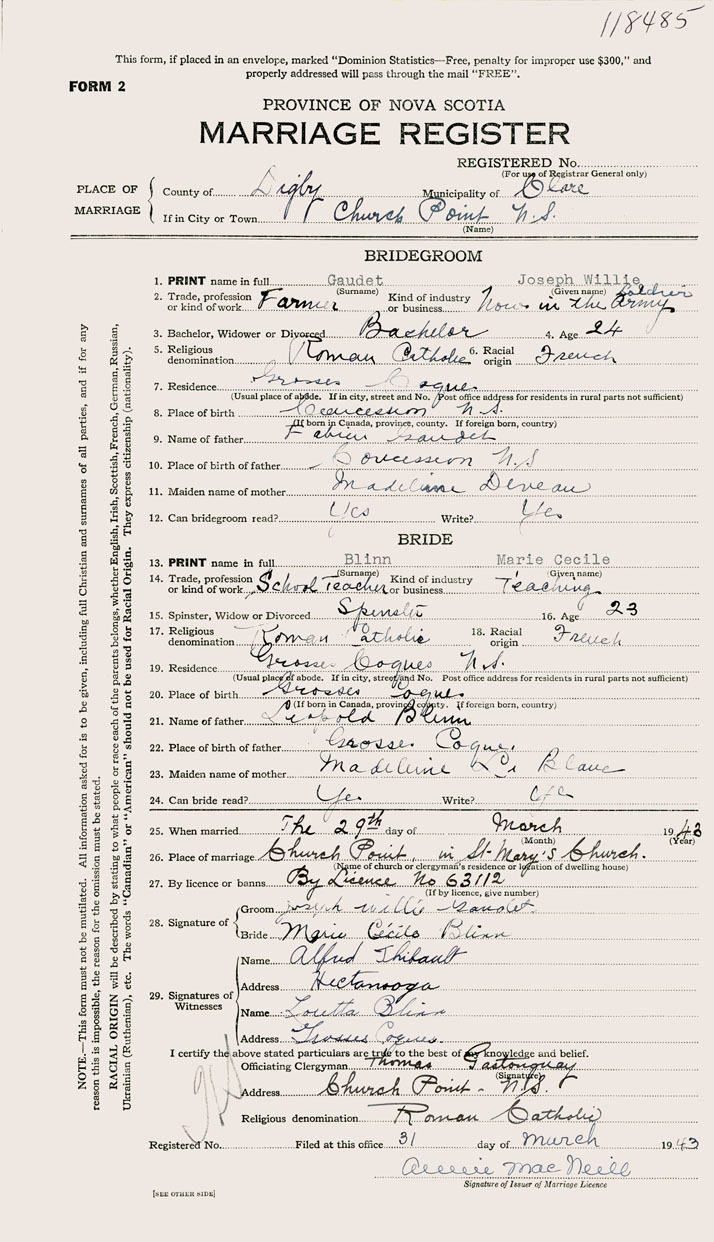 118485
This form, if placed in an envelope, marked "Dominion Statistics—Free, penalty for improper use $300," and
properly addressed will pass through the mail "FREE".
FORM 2
PROVINCE OF NOVA SCOTIA
MARRIAGE REGISTER
REGISTERED No.
(For use of Registrar General only)
PLACE OF MARRIAGE
County of Digby Municipality of Clare
If in City or Town Church Point N.S.
(Name)
BRIDEGROOM
1. PRINT name in full Gaudet Joseph Willie
(Surname) (Given name)
2. Trade, profession or kind of work Farmer Kind of industry or business Now in the Army Soldier
3. Bachelor, Widower or Divorced Bachelor 4. Age 24
5. Religious denomination Roman Catholic 6. Racial origin French
7. Residence Grosses Coques
(Usual place of abode. If in city, street and No. Post office address for residents in rural parts not sufficient)
8. Place of birth Concession N.S.
(If born in Canada, province, county. If foreign born, country)
9. Name of father Fabien Gaudet
10. Place of birth of father Concession N.S
11. Maiden name of mother Madeleine Deveau
12. Can bridegroom read? Yes Write? Yes
BRIDE
13. PRINT name in full Blinn Marie Cecile
(Surname) (Given name)
14. Trade, profession or kind of work School Teacher Kind of industry or business Teaching
15. Spinster, Widow or Divorced Spinster 16. Age 23
17. Religious denomination Roman Catholic 18. Racial origin French
19. Residence Grosses Coques N.S.
(Usual place of abode. If in city, street and No. Post office address for residents in rural parts not sufficient)
20. Place of birth Grosses Coques
(If born in Canada, province, county. If foreign born, country)
21. Name of father Leopold Blinn
22. Place of birth of father Grosses Coques
23. Maiden name of mother Madeleine Le Blanc
24. Can bride read? Yes Write? Yes
25. When married The 29th day of March 1943
(Month) (Year)
26. Place of marriage Church Point, in St-Mary's Church.
(Name of church or clergyman's residence or location of dwelling house)
27. By licence or banns By Licence No 63112
(If by licence, give number)
28. Signature of
Groom Joseph Willie Gaudet
Bride Marie Cécile Blinn
29. Signatures of Witnesses
Name Alfred Thibault
Address Hectanooga
Name Loretta Blinn
Address Grosses Coques.
I certify the above stated particulars are true to the best of my knowledge and belief.
Officiating Clergyman Thomas Gastonguay
(Signature)
Address Church Point - N.S.
Religious denomination Roman Catholic
Registered No. Filed at this office 31 day of March 1943
Annie MacNeill
Signature of Issuer of Marriage Licence
[SEE OTHER SIDE]
NOTE.—This form must not be mutilated. All information asked for is to be given, including full Christian and surnames of all parties, and if for any
reason this is impossible, the reason for the omission must be stated.
RACIAL ORIGIN will be described by stating to what people or race each of the parents belongs, whether English, Irish, Scottish, French, German, Russian,
Ukrainian (Ruthenian), etc. The words "Canadian" or "American" should not be used for Racial Origin. They express citizenship (nationality).